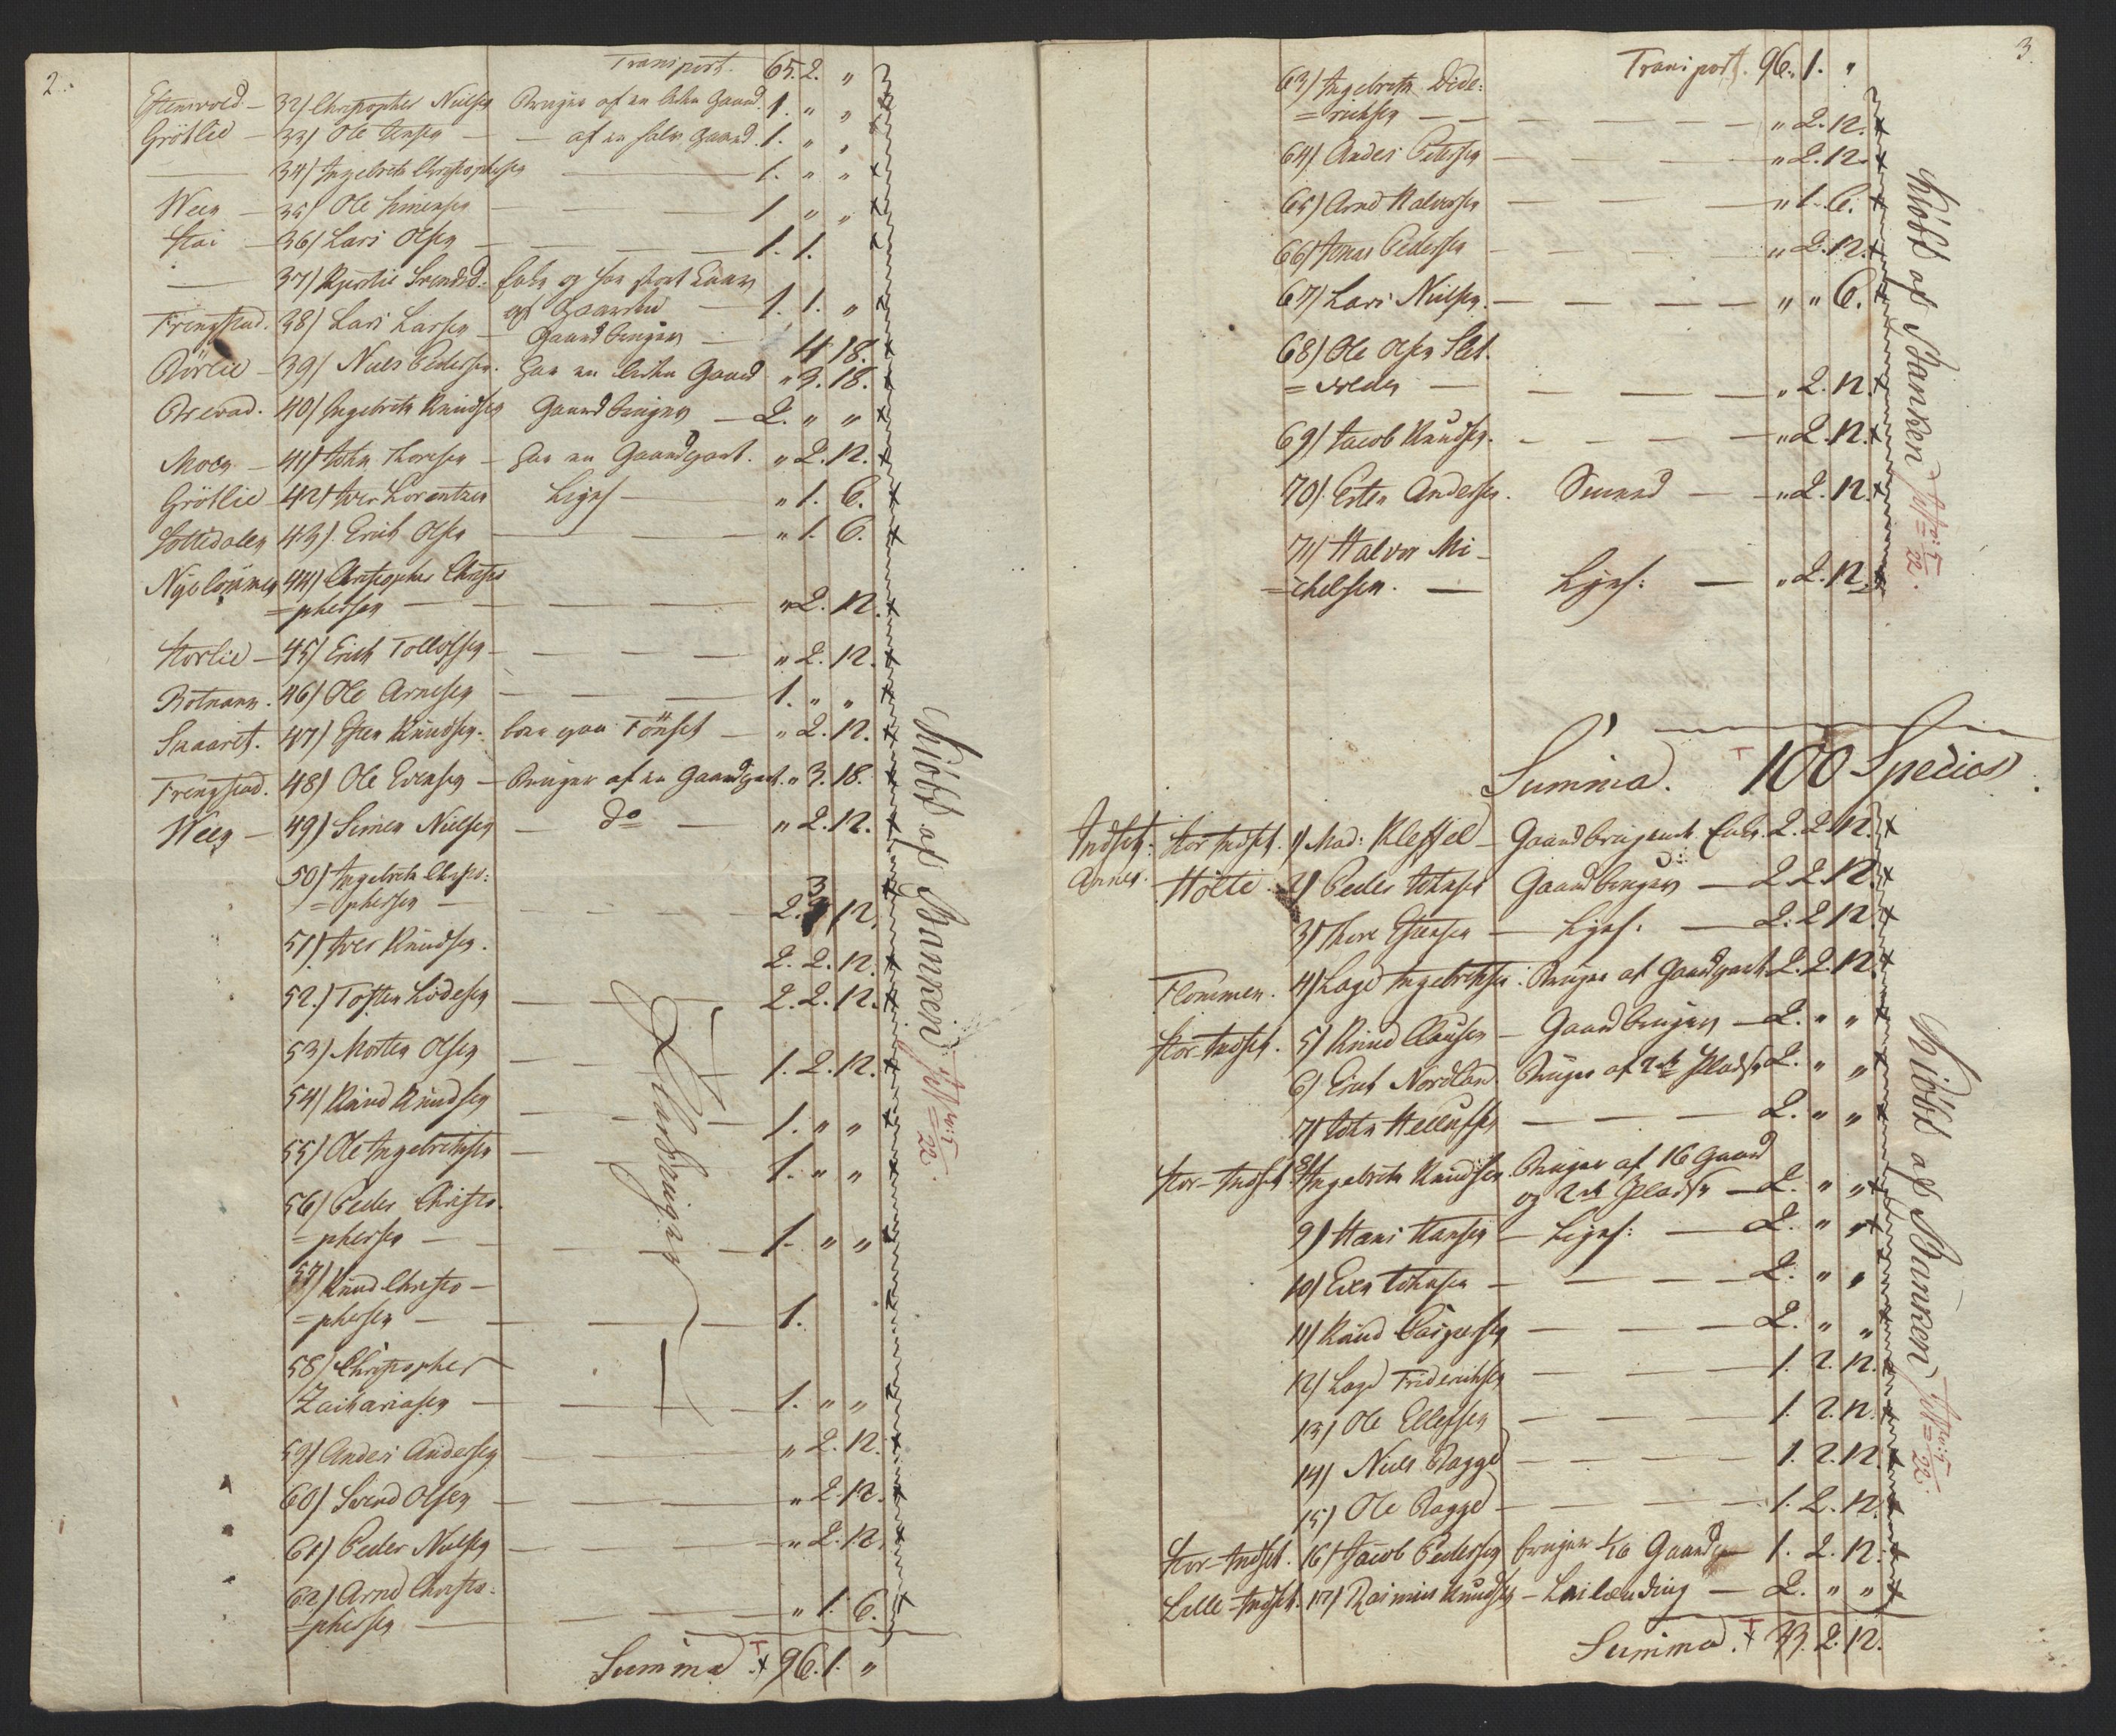 2.
Transport. 65. 2. "
Estensvold. — 32) Christopher Nielsen Bruger af en liden Gaard. 1. " "
Grötlie — 33) Ole Jensen — — af en halv Gaard. 1. " "
— 34) Ingebreth Christophersen — 1. " "
Ween — 35) Ole Simensen — — — 1 " "
Stai — 36) Lars Olsen — — — 1. 1.
— 37) Kjerstie Svendsd: Enke og har stort Laan
af Gaarden — 1. 1. "
Frengstad. 38) Lars Larsen — Gaardbruger — 4 18.
Börlie — 39) Niels Pedersen. har en liden Gaard " 3. 18.
Brevad. 40) Ingebreth Knudsen Gaardbruger — 2. " "
Moen — 41) John Thoresen — har en Gaardpart. " 2. 12.
Grötlie — 42) Iver Lorentzen Liges — " 1. 6.
43) Erich Olsen — — — " 1. 6.
44) Christopher Christo
=phersen — — — — " 2. 12.
Storlie — 45) Erich Tollofsen — — — — " 2. 12.
46) Ole Arnesen — — — 1. " "
47) Esten Knudsen. boer paa Tönset — " 2. 12.
Frengstad. 48) Ole Evensen — Bruger af en Gaardpart. " 3. 18.
Ween — 49) Simen Nielsen — do — " 2. 12.
50) Ingebreth Christo:
=phersen — — — — 2. 3 12.
51) Iver Knudsen. 2. 2. 12.
52.) Tosten — — — 2. 2. 12.
53) Morten Olsen — — 1. 2. 12.
54) Knud Knudsen — — 1. " "
55) Ole Ingebrethsen — — 1. " "
56) Peder Christo.
=phersen — — — — 1. " "
57) Knud Christo —
=phersen — — — — 1.
58) Christopher
Zachariasen — — — 1. " "
59) Anders Andersen — — " 2. 12.
60) Svend Olsen — — — " 2. 12.
61) Peder Nielsen — — — " 2. 12.
62) Arne Christo:
=phersen — — — " 1. 6.
Summa. 96. 1. "
Kiöbt af Banken
22.
3.
Transport. 96. 1. "
63) Ingebreth Dide:
=richsen — — — — " 2. 12.
64) Anders Petersen — — — " 2. 12.
65) Arne Halvorsen — — — " 1. 6.
66) Jonas Pedersen — — — " 2. 12.
67) Lars Nielsen. — — — — " " 6.
68) Ole Olsen Slet.
— — — — " 2. 12.
69) Jacob Knudsen. — — — — " 2. 12.
70) Esten Andersen. Smed — " 2. 12.
71) Halvor Mi —
=chelsen. — Ligs: — " 2. 12.
Kiöbt af Banken
22.
Summa. 100 Species
Indset: Stor Indset. 1) Mad: Kleffel — Gaardbrugende Enke 2. 2. 12.
Annex. Hölte. 2) Peder Johnsen Gaardbruger — 2 2 12.
3) Thore Estensen — Ligs: — 2. 2 12.
Flommen. 4) Lage Ingebrethsen. Bruger af Gaardpart 2. 2. 12.
Stor-Indset. 5) Knud Clausen — Gaardbruger — 2. " "
6) Erich Nordlan. Bruger af 2de Pladse 2. " "
7) John — — — 2. " "
Stor-Indset 8) Ingebreth Knudsen Bruger af 16 Gaard
og 2de Pladse — 2. " "
9) Hans Hansen — Ligs: — 2. " "
10) Even Johnsen — — — — 2. " "
11) Knud Caspersen — — — 2. " "
12) Lage Friderichsen — — — 1. 2. 12.
13) Ole Ellefsen — — — 1. 2. 12.
14) Niels Bagge — — — — 1. 2. 12.
15) Ole Bagge — — — — 1. 2. 12.
Stor-Indset. 16) Jacob Pedersen bruger 1/16 Gaard — 1. 2. 12.
Lille-Indset. 17) Rasmus Knudsen — Leilænding — 2. " "
Summa. 33. 2. 12.
Kiöbt af Banken
22.